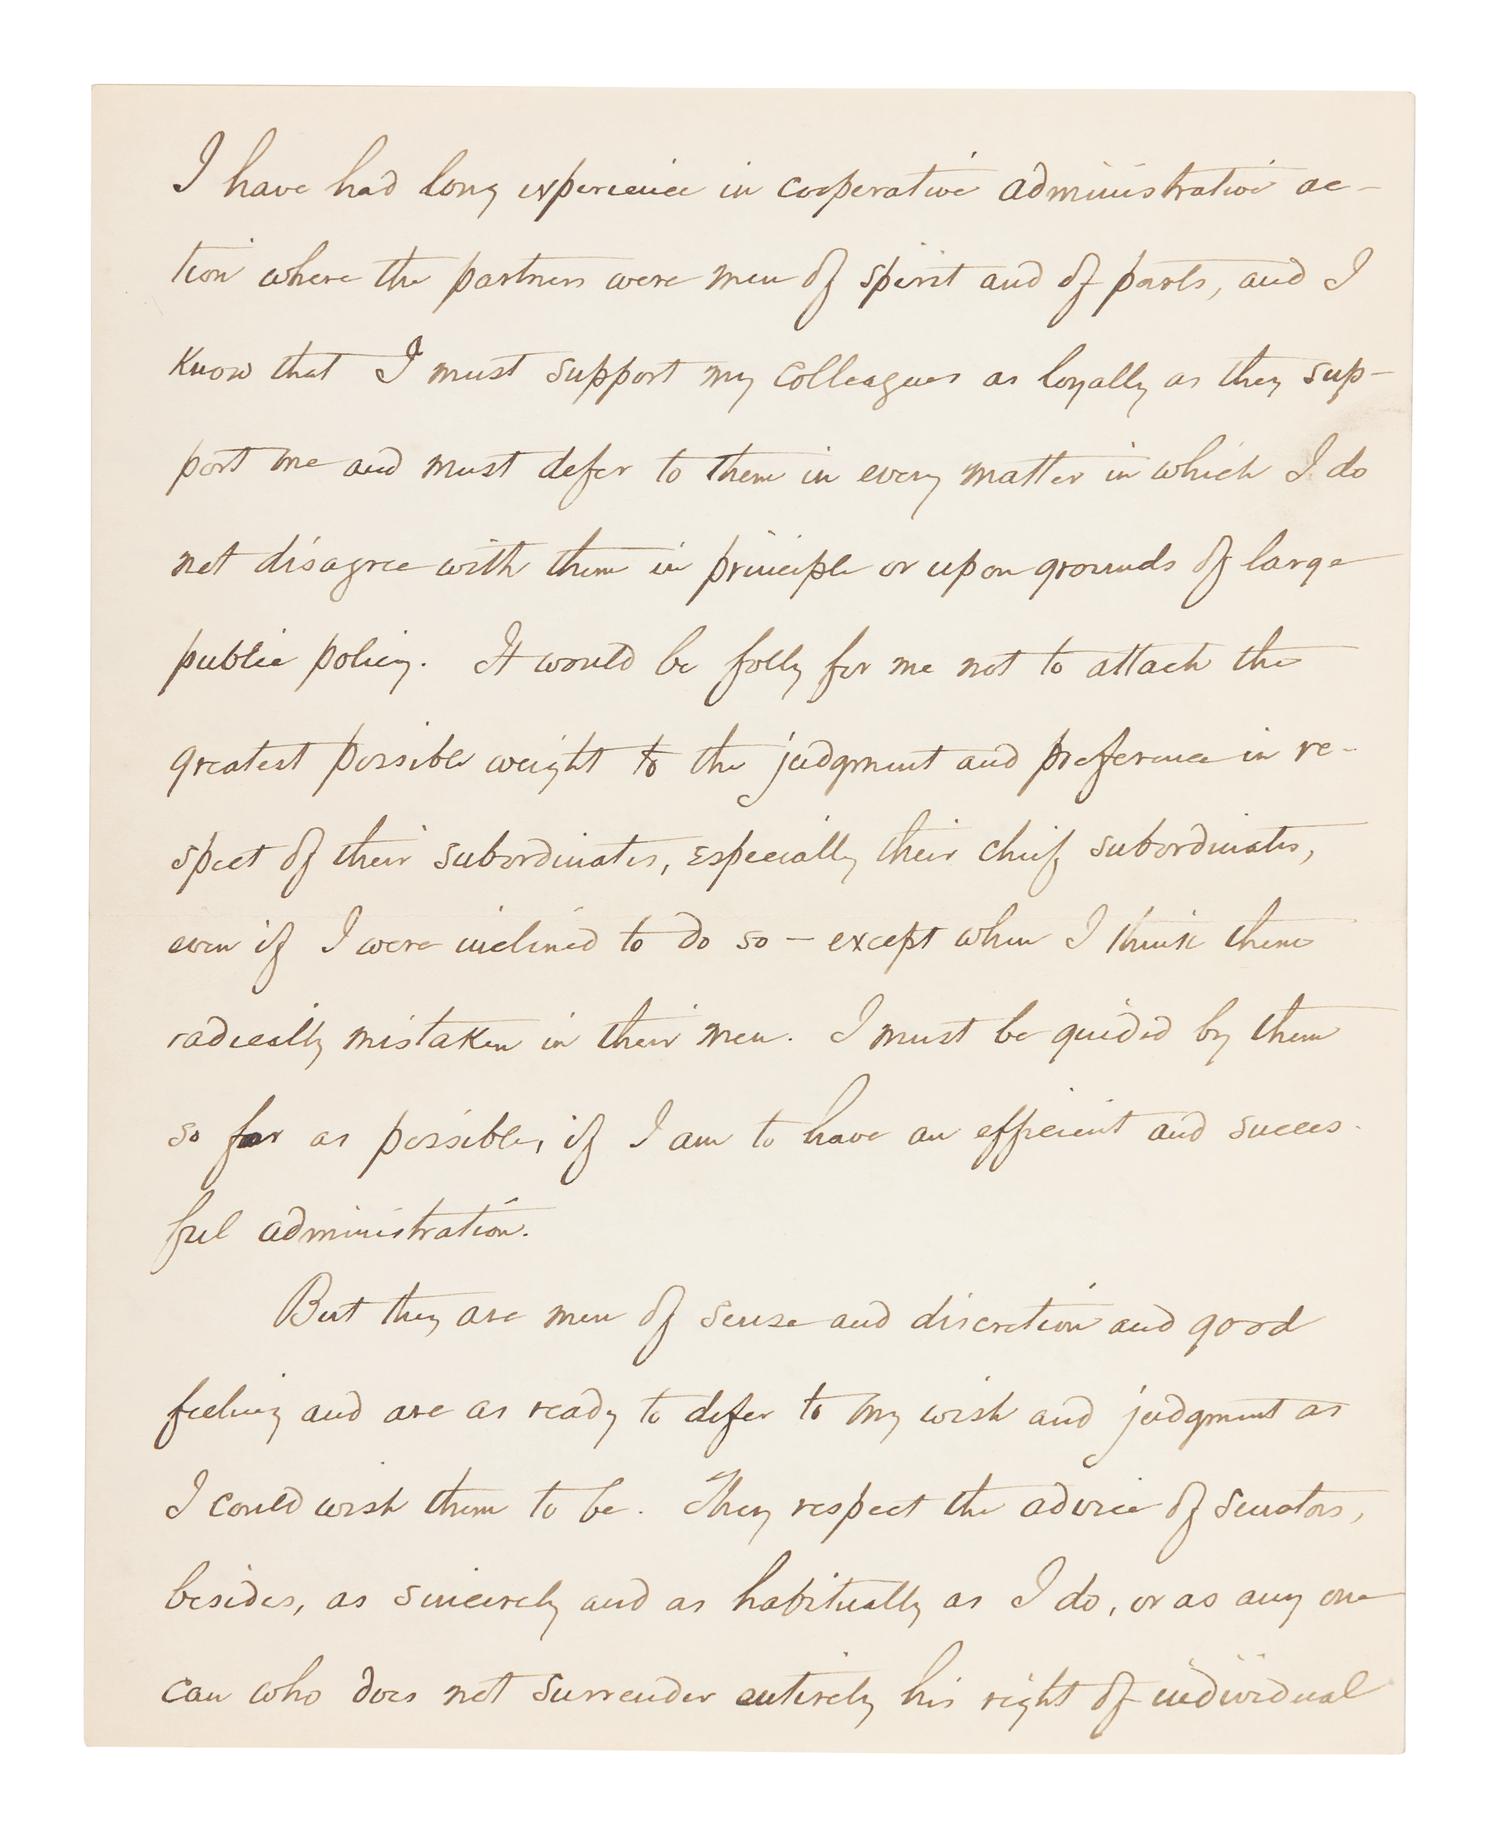 I have had long experience in cooperative administrative ac-
tion where the partners were men of spirit and of parts, and I
know that I must support my colleagues as loyally as they sup-
port me and must defer to them in every matter in which I do
not disagree with them in principle or upon grounds of large
public policy. It would be folly for me not to attach the
greatest possible weight to the judgment and preference in re-
spect of their subordinates, especially their chief subordinates,
even if I were inclined to do so – except when I think them
radically mistaken in their men. I must be guided by them
so far as possible, if I am to have an efficient and succes-
ful administration.
But they are men of sense and discretion and good
feeling and are as ready to defer to my wish and judgment as
I could wish them to be. They respect the advice of Senators,
besides, as sincerely and as habitually as I do, or as any one
can who does not surrender entirely his right of individual